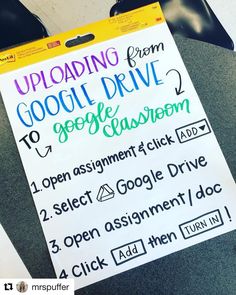 Post-it
UPLOADING from
GOOGLE DRIVE
TO google
classroom
1. Open assignment & click ADD
2. Select Google Drive
3. Open assignment/doc
4 Click Add then TURN IN !
mrspuffer